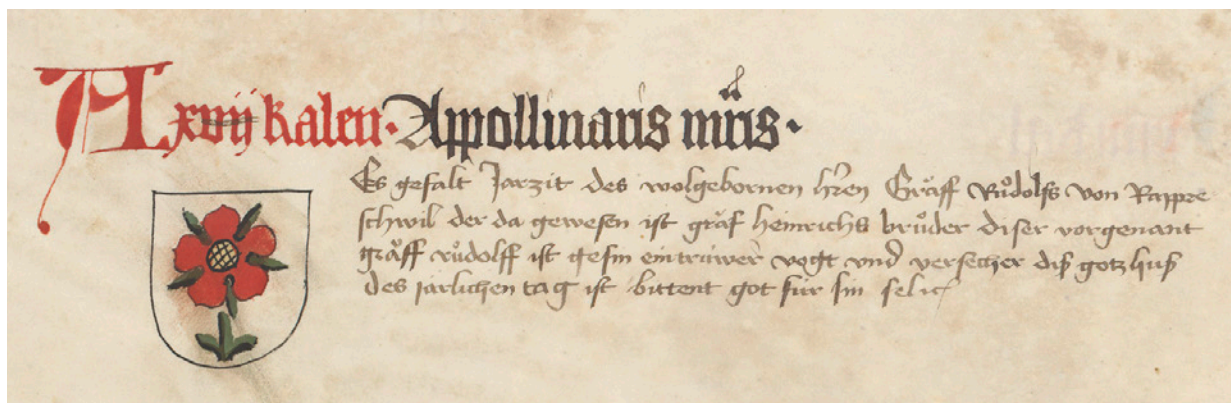 A xviij kalen · Appollinaris mris ·
Es gefalt Jarzit des wolgebornen hren Gräff Růdolfs von Rappre
schwil der da gewesen ist gräf heinrichs brůder diser vorgenant
gräff růdolff ist gesin ein trüwer vogt vnd versecher diß gotzhuß
des jarlichen tag ist bittent got für sin selich